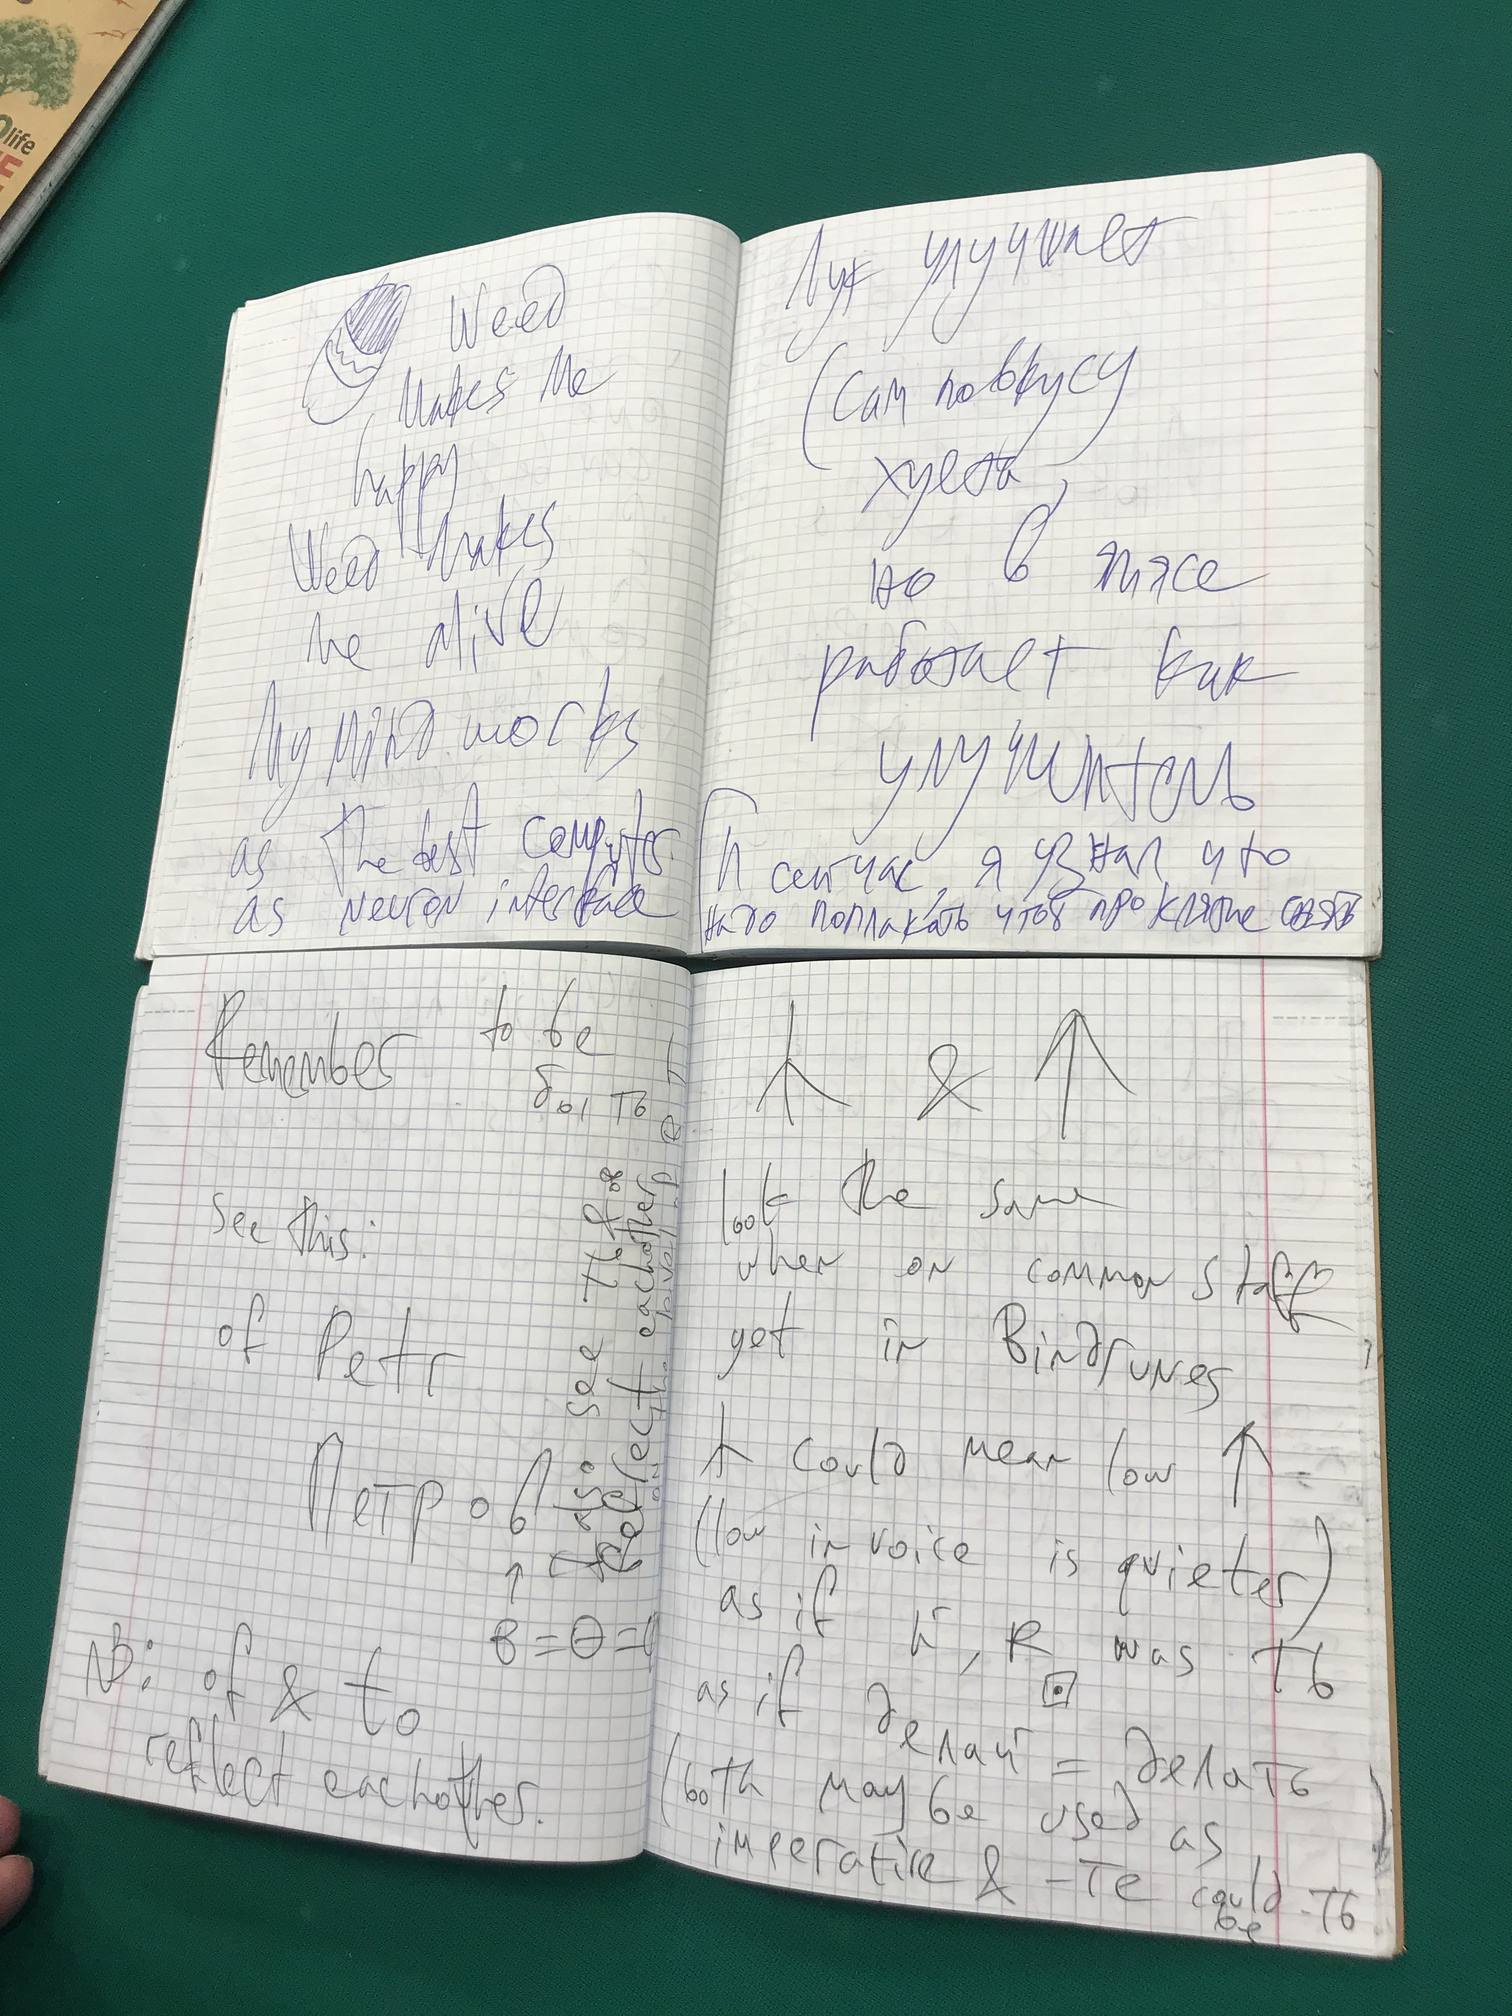 life
Weed
Makes Me
happy
Weed Makes
me alive
My mind works
as the best computer
as neuron interface
Лук улучшает
(Сам по вкусу
хуета,)
но в мясе
работает как
улучшитель
И сейчас, я узнал что
надо поплакать чтоб проклятие снять
Remember to be
быть
See this:
of Petr
Петров
↑
в = Θ =
NB: of & to
reflect eachother.
Also see ть
Reflect eachother
&
look the same
when on common staff
yet in Bindrunes
could mean low ↑
(low in voice is quieter)
as if й, R was ть
as if делай = делать
(both may be used as
imperative & -те could be -ть